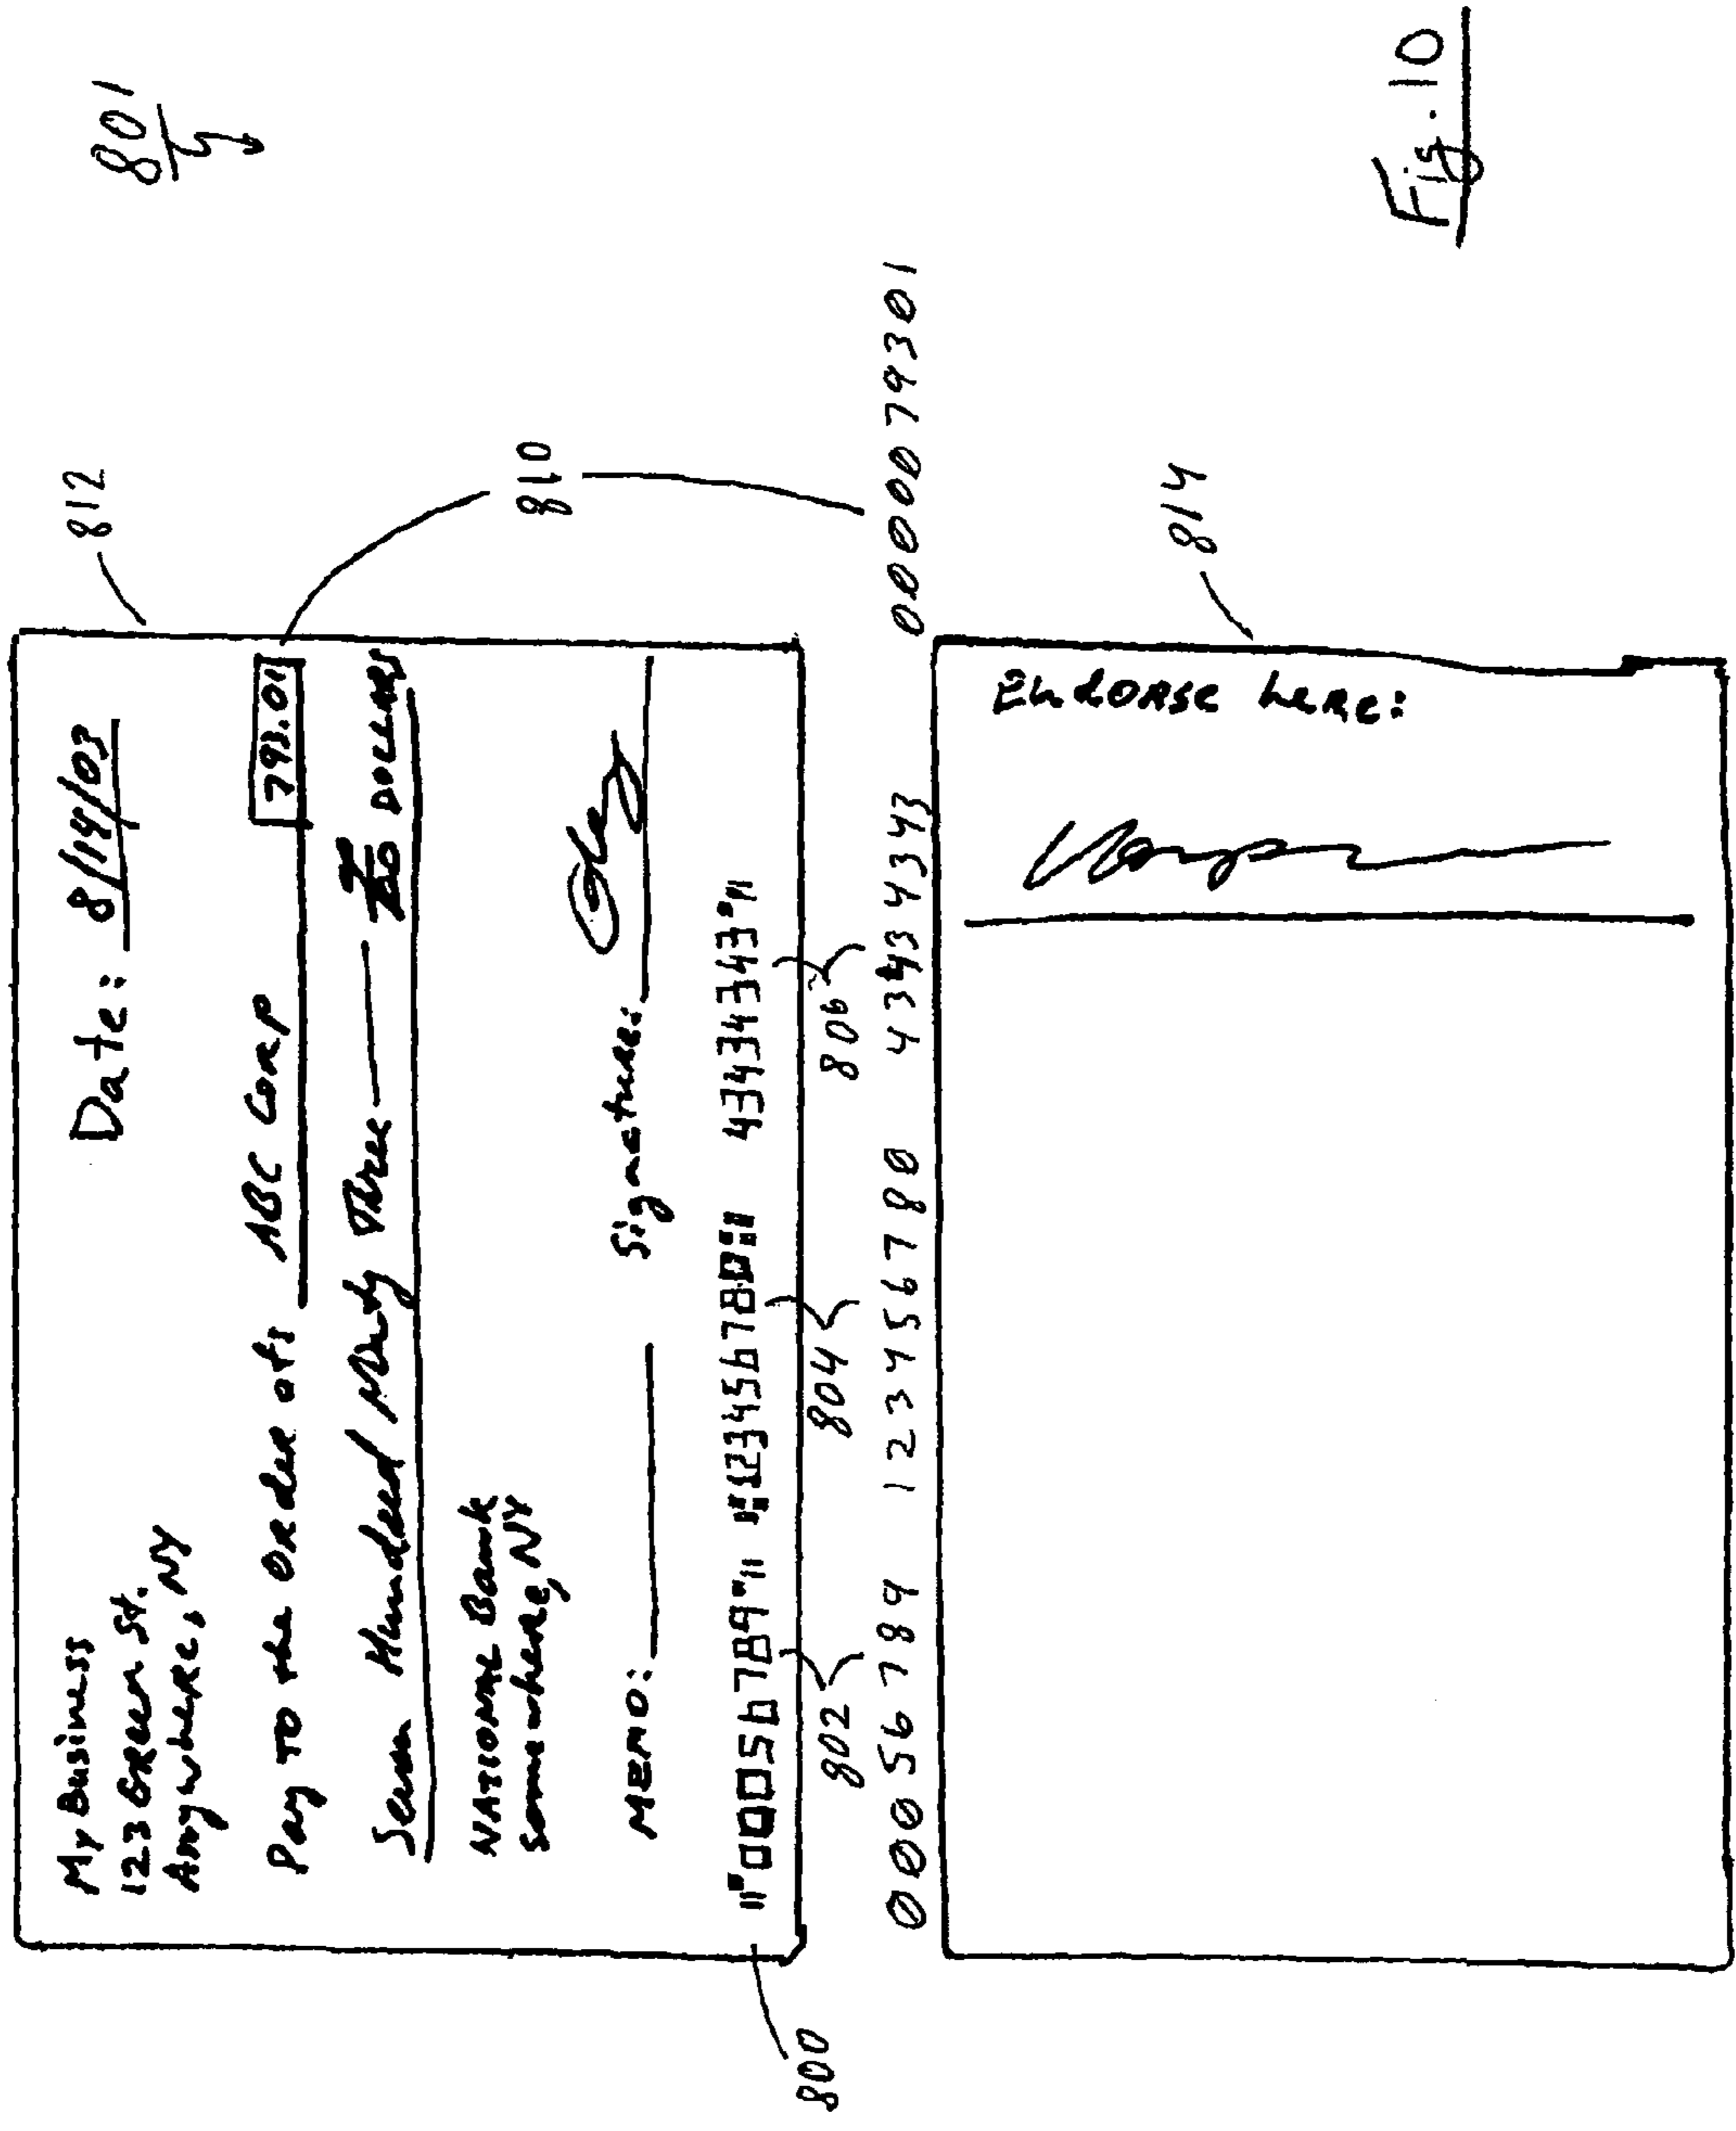 801
812
My Business
123 Green St.
Anywhere, NY
Date: 8/14/03
Pay To the Order of: ABC Corp 793.01
Seven Hundred Ninety Three — 1/100 DOLLARS
810
NATIONAL Bank
Somewhere, NY
MEMO: Signature:
800
⑈000056789⑈ ⑆123456780⑆ 43434343⑈
802 804 806
000056789 123456780 43434343 0000079301
814
Endorse here:
Fig. 10